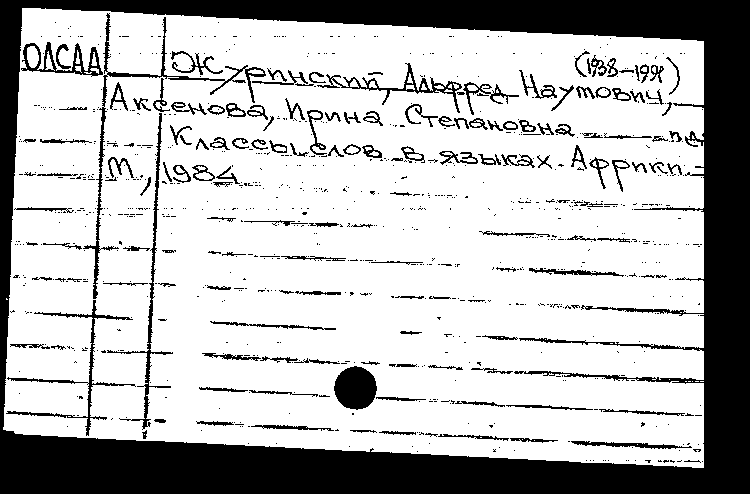 (1938-1991)
ОЛСАА Журинский, Альфред Наумович,
Аксенова, Ирина Степановна
Классы слов в языках Африки. -
М., 1984